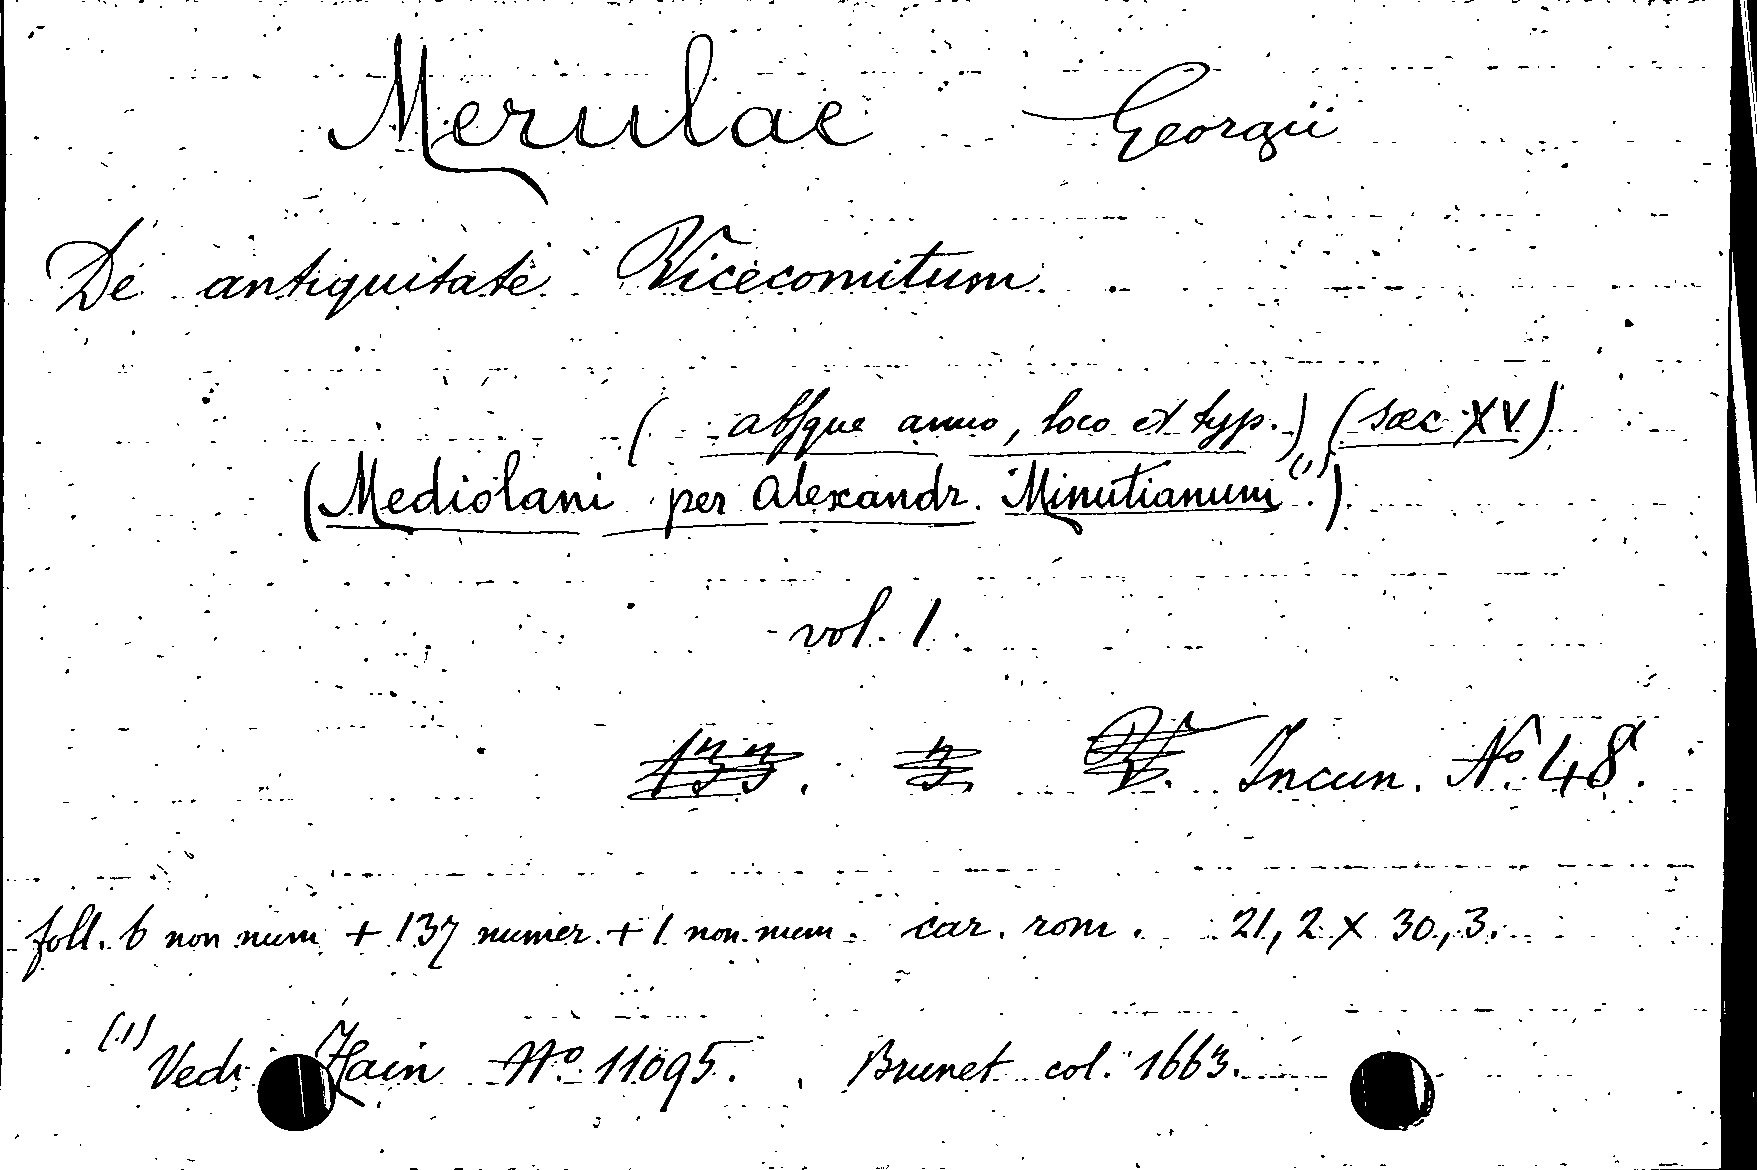 Merulae Georgii
De antiquitate Vicecomitum.
( absque anno, loco et typ.) (sæc. XV)
(Mediolani per Alexandr. Minutianum (1).)
vol. 1.
133. 3. V. Incun. No. 48.
foll. 6 non num + 137 numer. + 1 non num. car. rom. 21,2 x 30,3.
(1) Vedi Hain No. 11095. Brunet col. 1663.